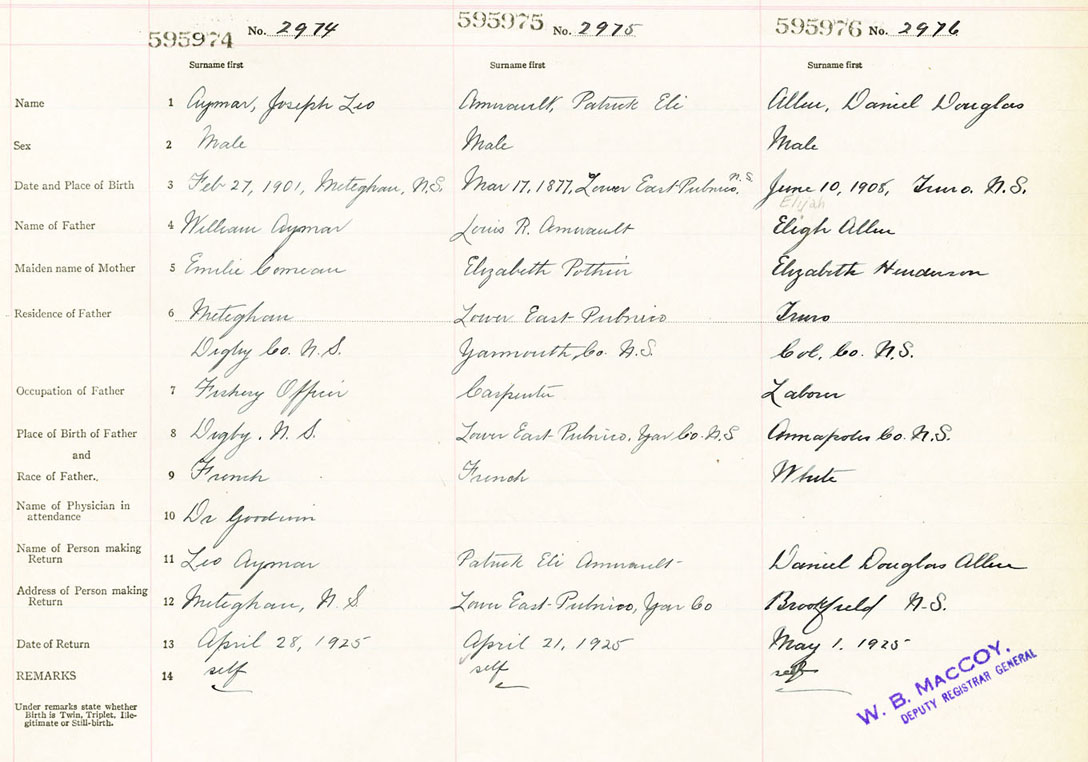 595974 No. 2974 595975 No. 2975 595976 No. 2976
Surname first Surname first Surname first
Name 1 Aymar, Joseph Leo Amirault, Patrick Eli Allen, Daniel Douglas
Sex 2 Male Male Male
Date and Place of Birth 3 Feb 27, 1901, Meteghan, N.S. Mar 17, 1877, Lower East Pubnico, N.S. June 10, 1908, Truro. N.S.
Elijah
Name of Father 4 William Aymar Louis R. Amirault Eligh Allen
Maiden name of Mother 5 Emilie Comeau Elizabeth Pothier Elizabeth Henderson
Residence of Father 6 Meteghan Lower East Pubnico Truro
Digby Co. N.S. Yarmouth, Co. N.S. Col. Co. N.S.
Occupation of Father 7 Fishery Officer Carpenter Laborer
Place of Birth of Father 8 Digby. N.S. Lower East Pubnico, Yar Co. N.S Annapolis Co. N.S.
and
Race of Father.. 9 French French White
Name of Physician in
attendance 10 Dr Goodwin
Name of Person making
Return 11 Leo Aymar Patrick Eli Amirault Daniel Douglas Allen
Address of Person making
Return 12 Meteghan, N.S. Lower East Pubnico, Yar Co Brookfield N.S.
Date of Return 13 April 28, 1925 April 21, 1925 May 1. 1925
REMARKS 14 self self self
Under remarks state whether
Birth is Twin, Triplet, Ille-
gitimate or Still-birth.
W. B. MACCOY,
DEPUTY REGISTRAR GENERAL